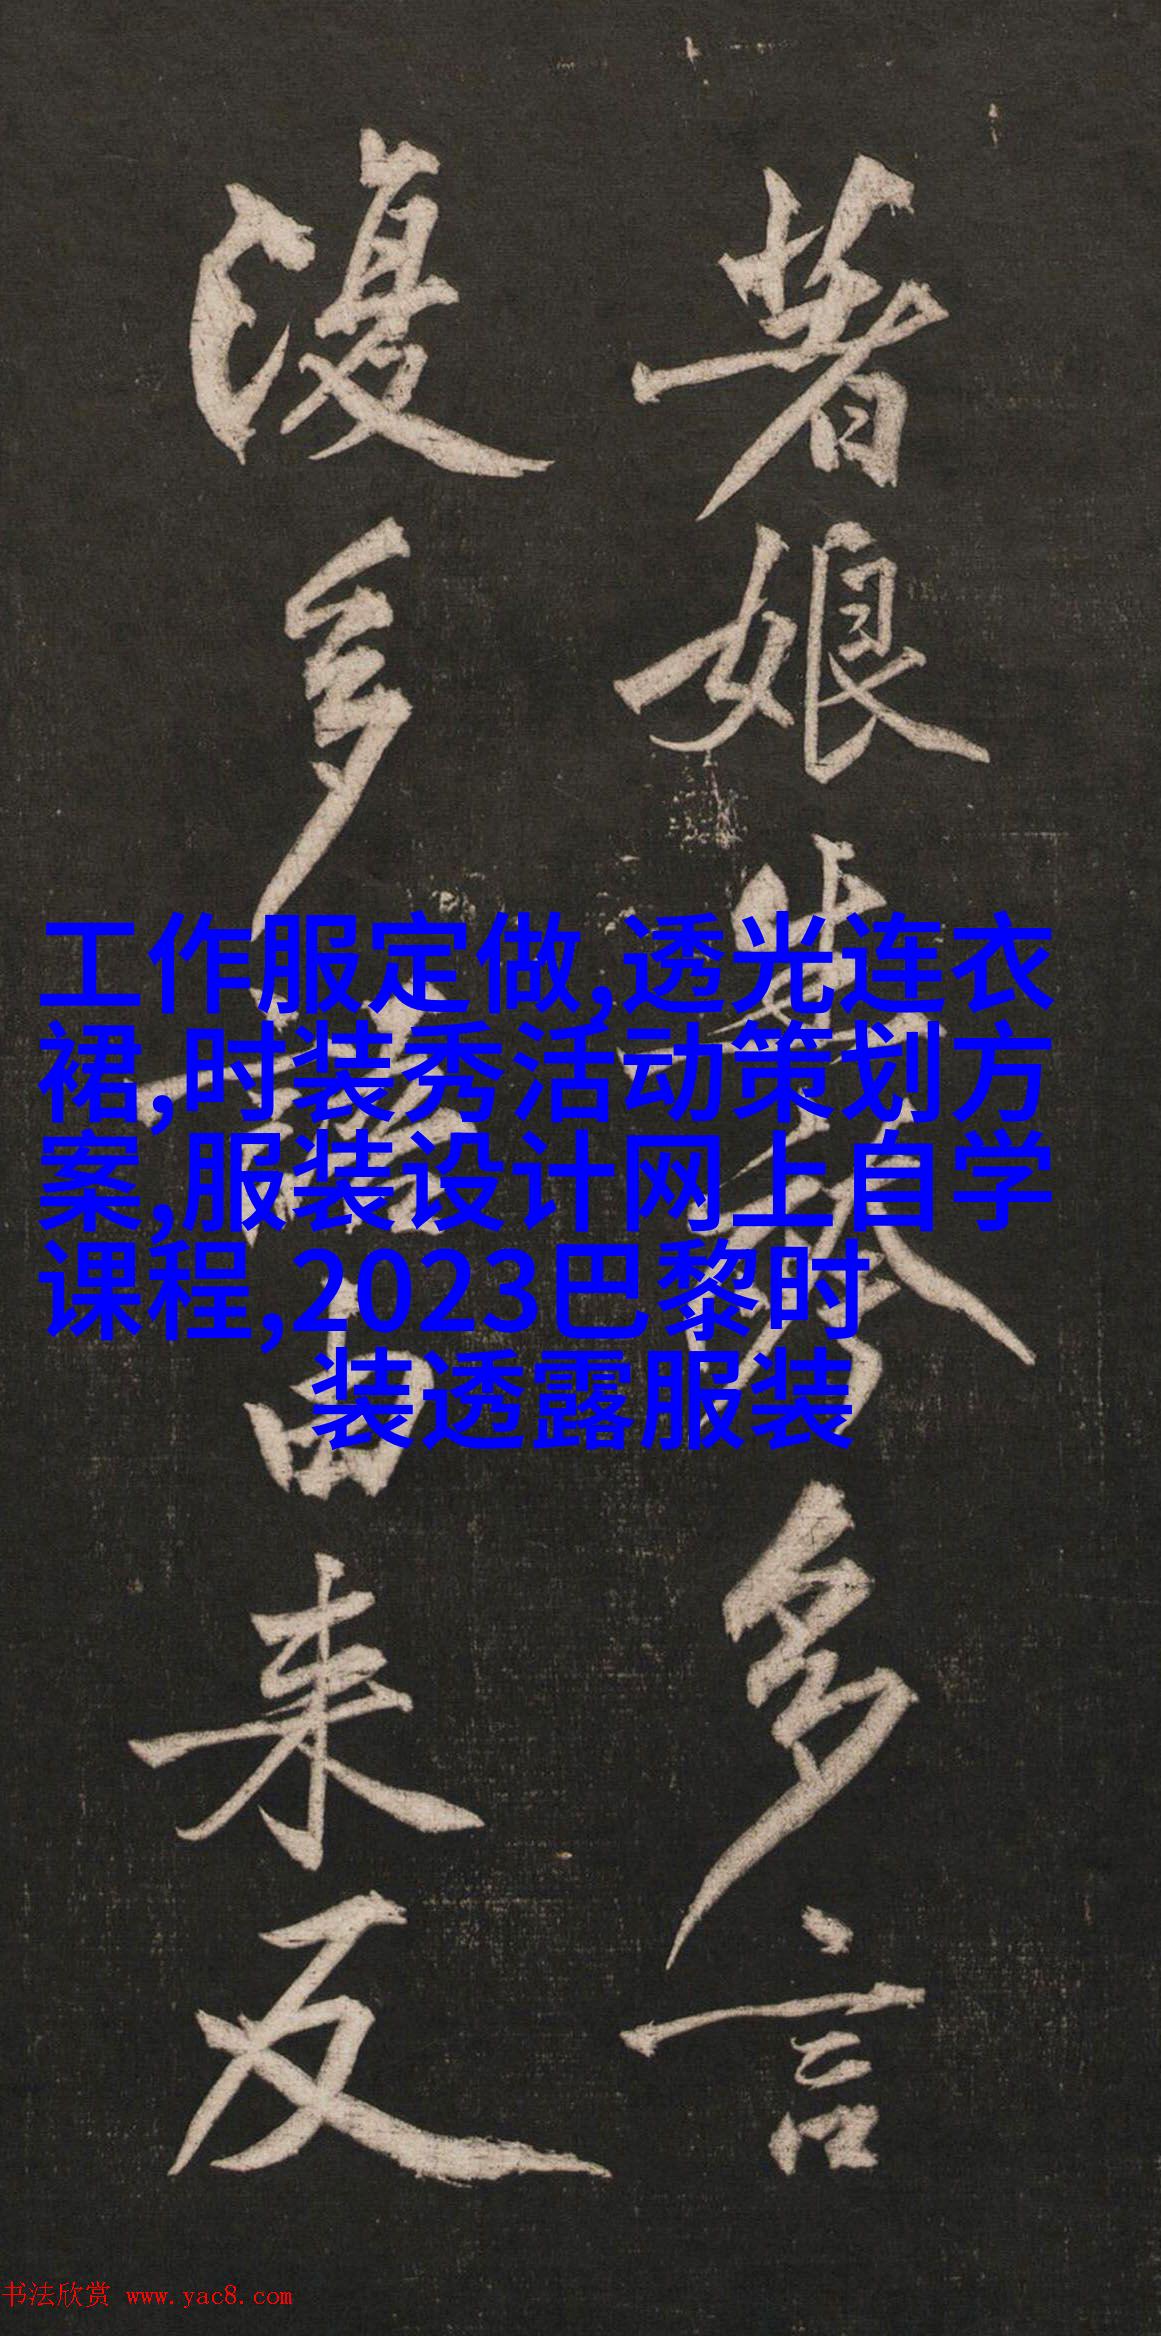 娘多言
多由来反
工作服定做,透光连衣
裙,时装秀活动策划方
案,服装设计网上自学
课程,2023巴黎时
装透露服装
书法欣赏 www.yac8.com